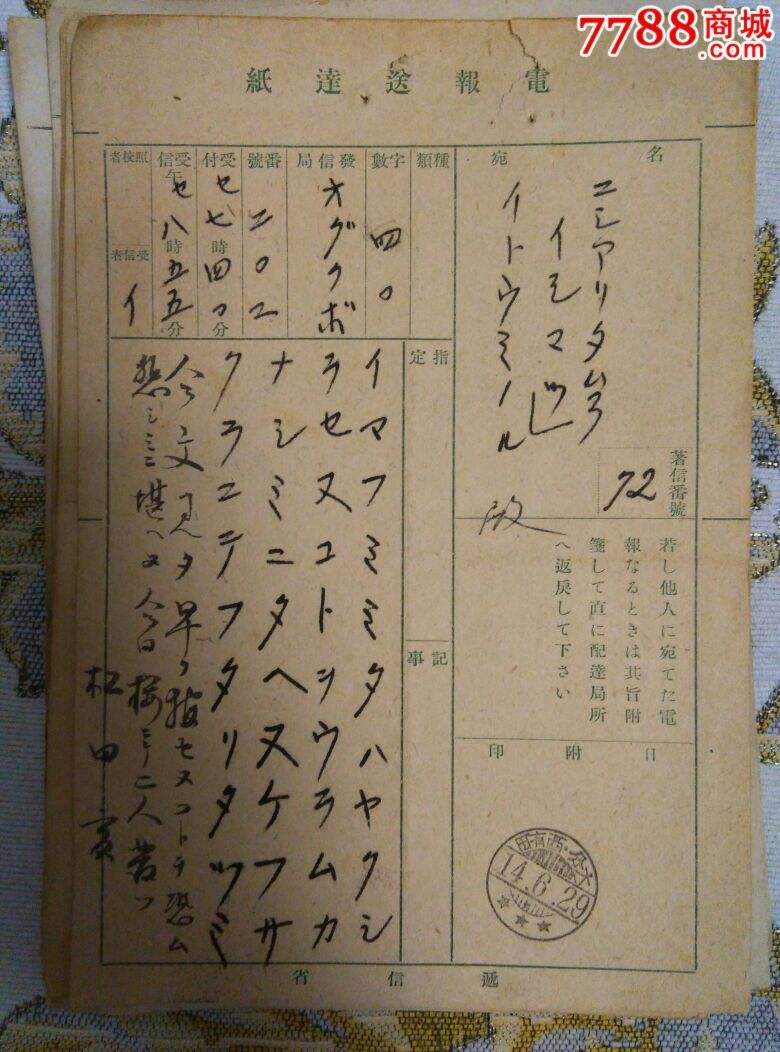 7788商城
.com
電報送達紙
宛名
ニシアリタムラ
イマ
イトウミノル
殿
著信番號
72
若し他人に宛てた電
報なるときは其旨附
箋して直に配達局所
へ返戻して下さい
日附印
14.6.29
種類
字數
四〇
發信局
オグクボ
番號
二〇二
受付
セ七時四〇分
受信
午セ八時五五分
照校者
受信者
イ
指定
記事
イマフミミタハヤクシ
ラセヌコトヲウラムカ
ナシミニタヘヌケフサ
クラニテフタリタツミ
今文見タ早ク報セヌコトヲ恐ム
悲シミニ堪ヘヌ今日桜ニテ二人
松田
遞信省